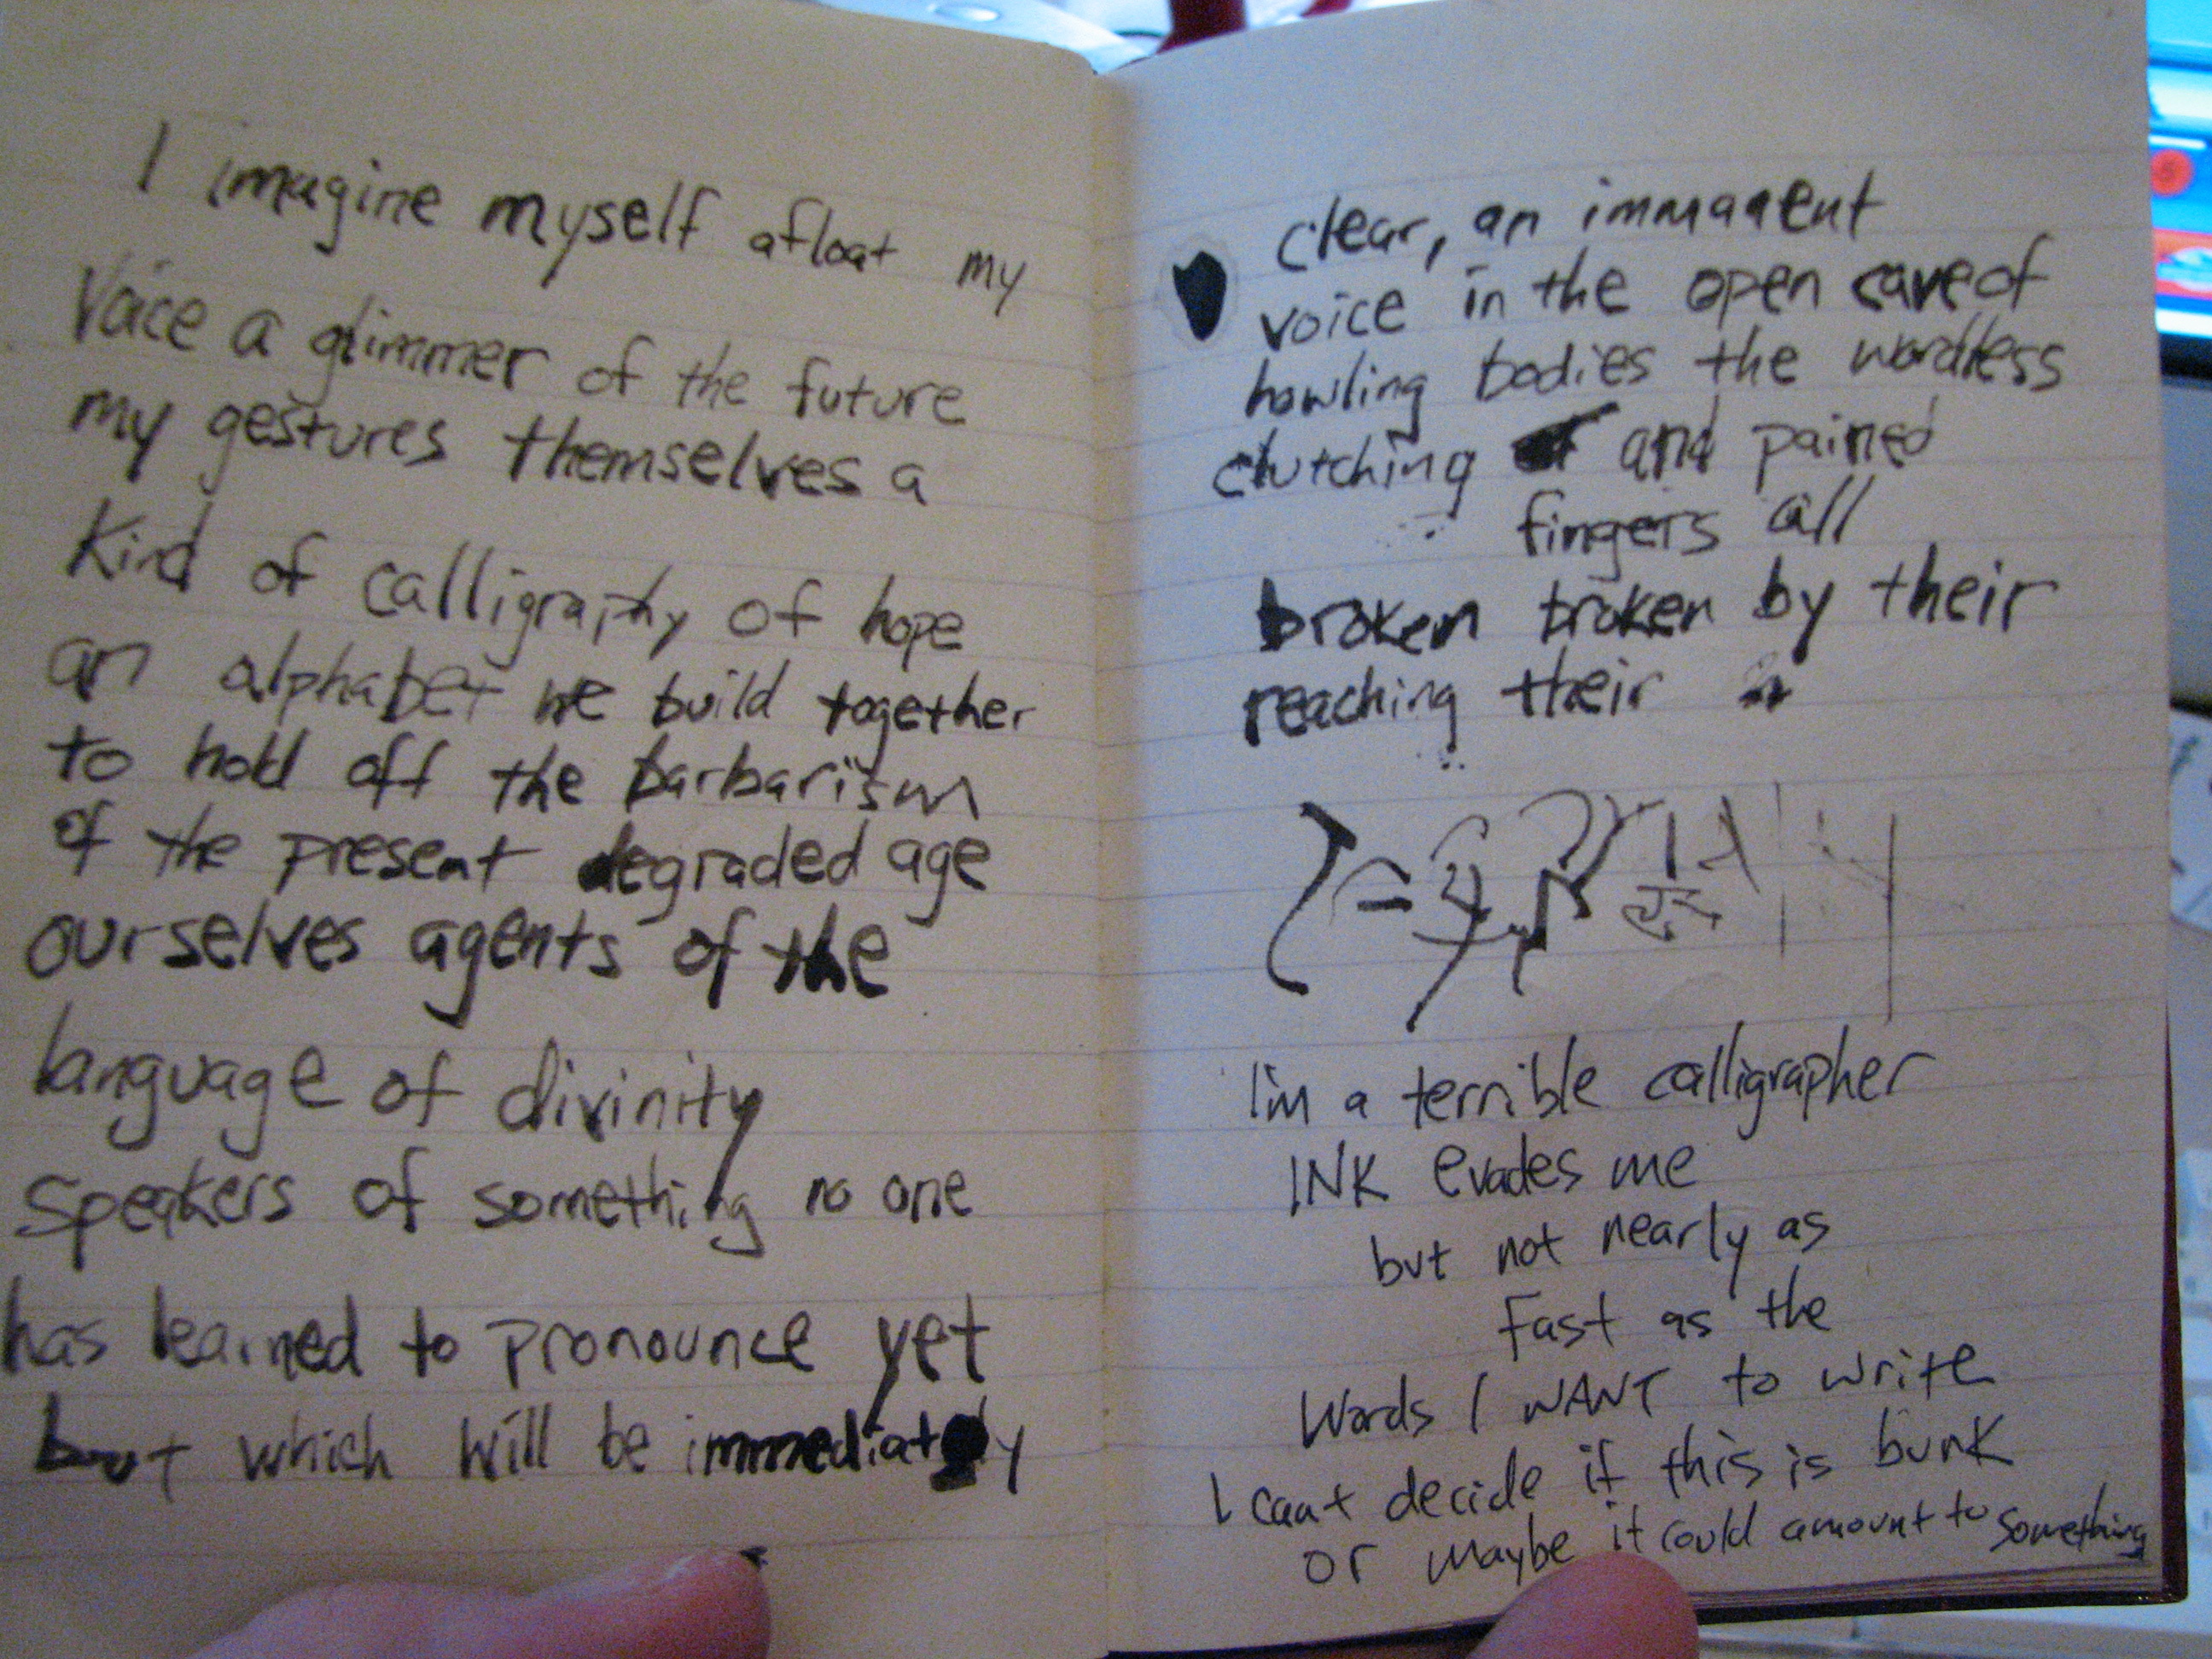 I imagine myself afloat my
Voice a glimmer of the future
my gestures themselves a
Kind of calligraphy of hope
an alphabet we build together
to hold off the barbarism
of the present degraded age
ourselves agents of the
language of divinity
Speakers of something no one
has learned to pronounce yet
but which will be immediately
clear, an immanent
voice in the open cave of
howling bodies the wordless
clutching and pained
fingers all
broken broken by their
reaching their
I'm a terrible calligrapher
INK evades me
but not nearly as
Fast as the
Words I WANT to write
I cant decide if this is bunk
or maybe it could amount to something